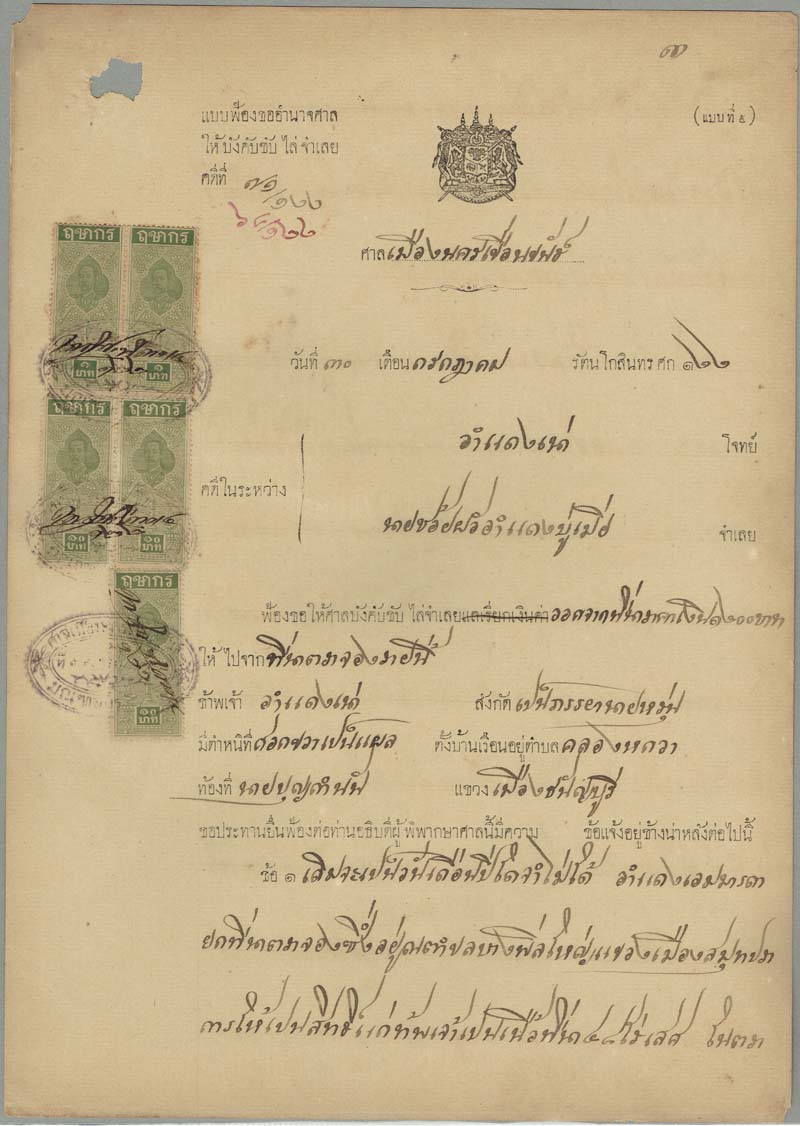 ๓
แบบฟ้องขออำนาจศาล
ให้บังคับขับไล่จำเลย
(แบบที่ ๕)
คดีที่ ๗๑/๑๒๒
๖๘/๑๒๒
ศาลเมืองนครเขื่อนขันธ์
วันที่ ๓๐ เดือน กรกฎาคม รัตนโกสินทร ศก ๑๒๒
อำแดงเห่ โจทย์
คดีในระหว่าง
นายช่วยผัวอำแดงบู่เมีย จำเลย
ฟ้องขอให้ศาลบังคับขับไล่จำเลยแลเรียกเงินค่าออกจากที่นาราคาเงิน ๑๒๐๐ บาท
ให้ไปจาก ที่นาตราจองรายนี้
ข้าพเจ้า อำแดงเห่ สังกัด เป็นภรรยานายหนุ่ม
มีตำหนิที่ ศอกขวาเป็นแผล ตั้งบ้านเรือนอยู่ตำบล คลองหกวา
ท้องที่ นายบุญกำนัน แขวง เมืองธัญบุรี
ขอประทานยื่นฟ้องต่อท่านอธิบดีผู้พิพากษาศาลนี้มีความ ข้อแจ้งอยู่ข้างน่าหลังต่อไปนี้
ข้อ ๑ เดิมจะเปนวันเดือนปีใดจำไม่ได้ อำแดงเอมมารดา
ยกที่นาตราจองซึ่งอยู่ณตำบลบางพลีใหญ่แขวงเมืองสมุทปรา
การให้เปนสิทธิแก่ข้าพเจ้าเปนเนื้อที่นา ๔๘ ไร่เศศ ในตรา
ฤชากร
ฤชากร
๑ บาท
๑ บาท
ฤชากร
ฤชากร
๑๐ บาท
๑๐ บาท
ฤชากร
๑๐ บาท